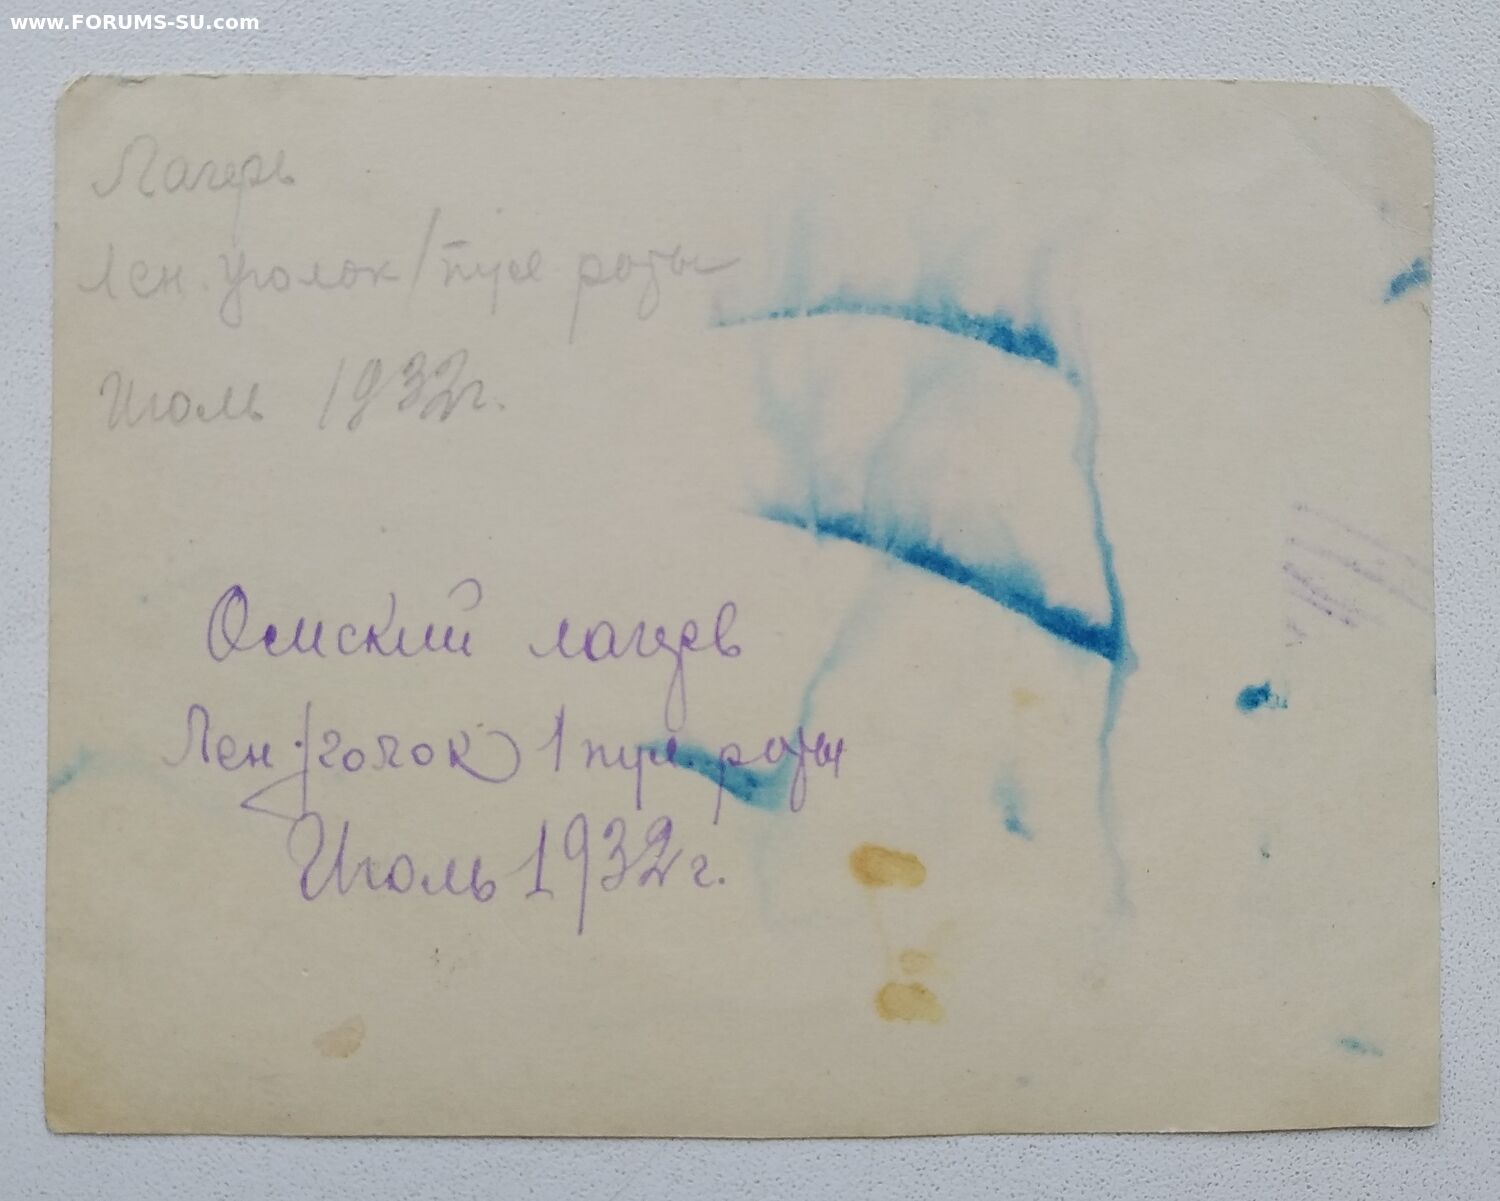 www.FORUMS-SU.com
Лагерь
Лен. уголок 1 пул роты
Июль 1932г.
Омский лагерь
Лен. уголок 1 пул. роты
Июль 1932 г.